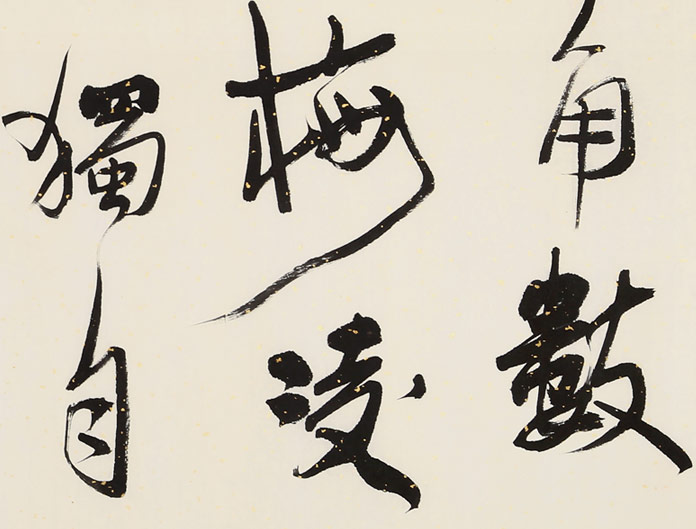 角數
梅凌
獨自